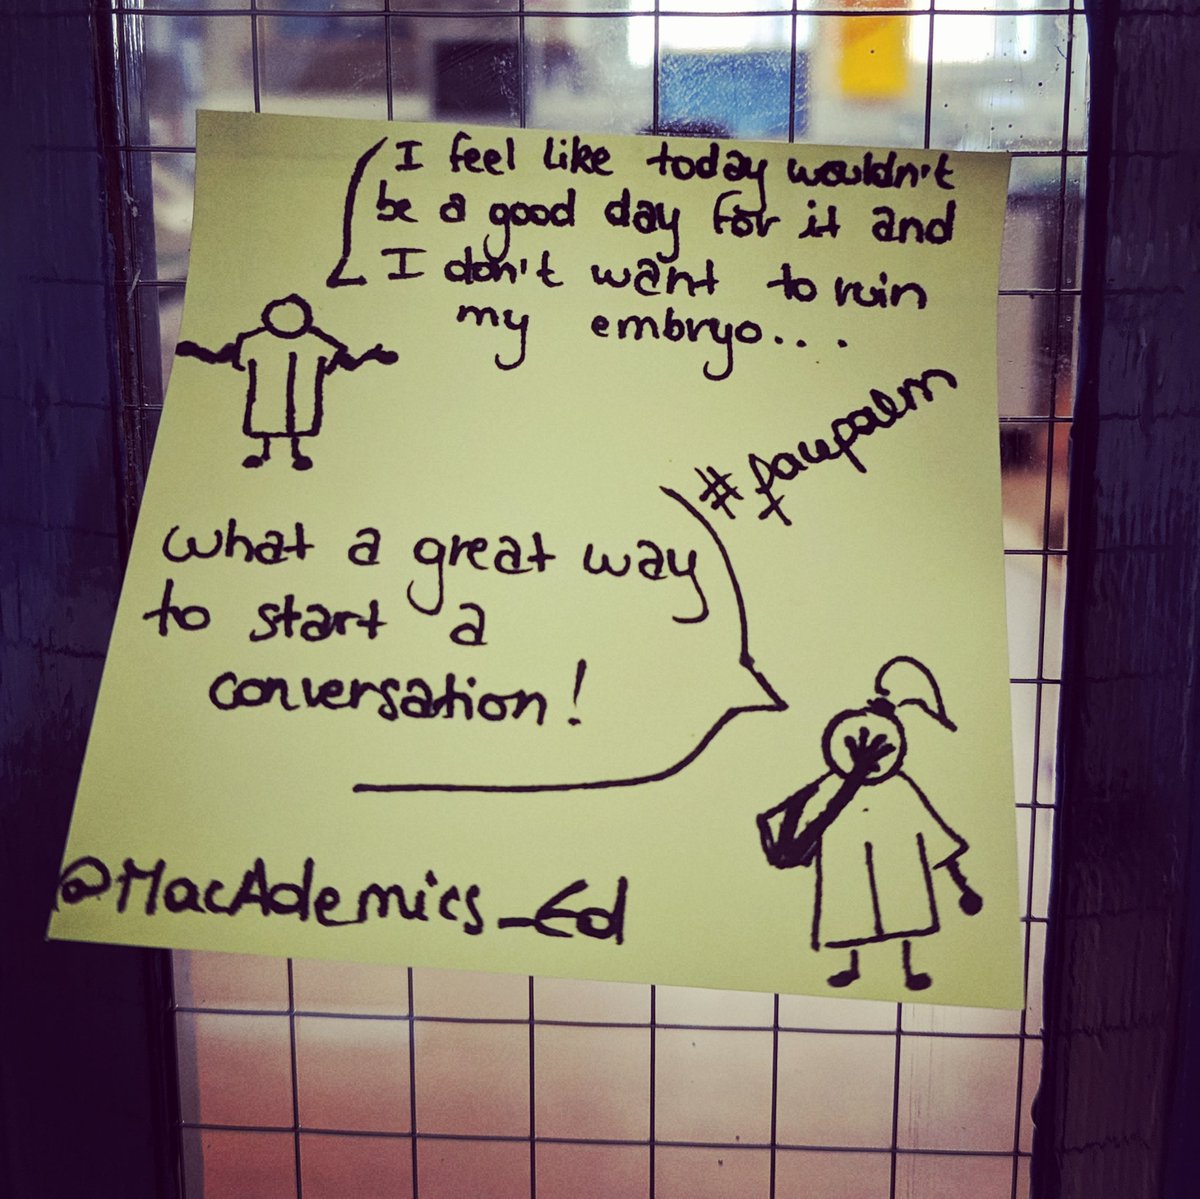 I feel like today wouldn't
be a good day for it and
I don't want to ruin
my embryo....
#facepalm
what a great way
to start a
conversation!
@MacAdemics_Ed